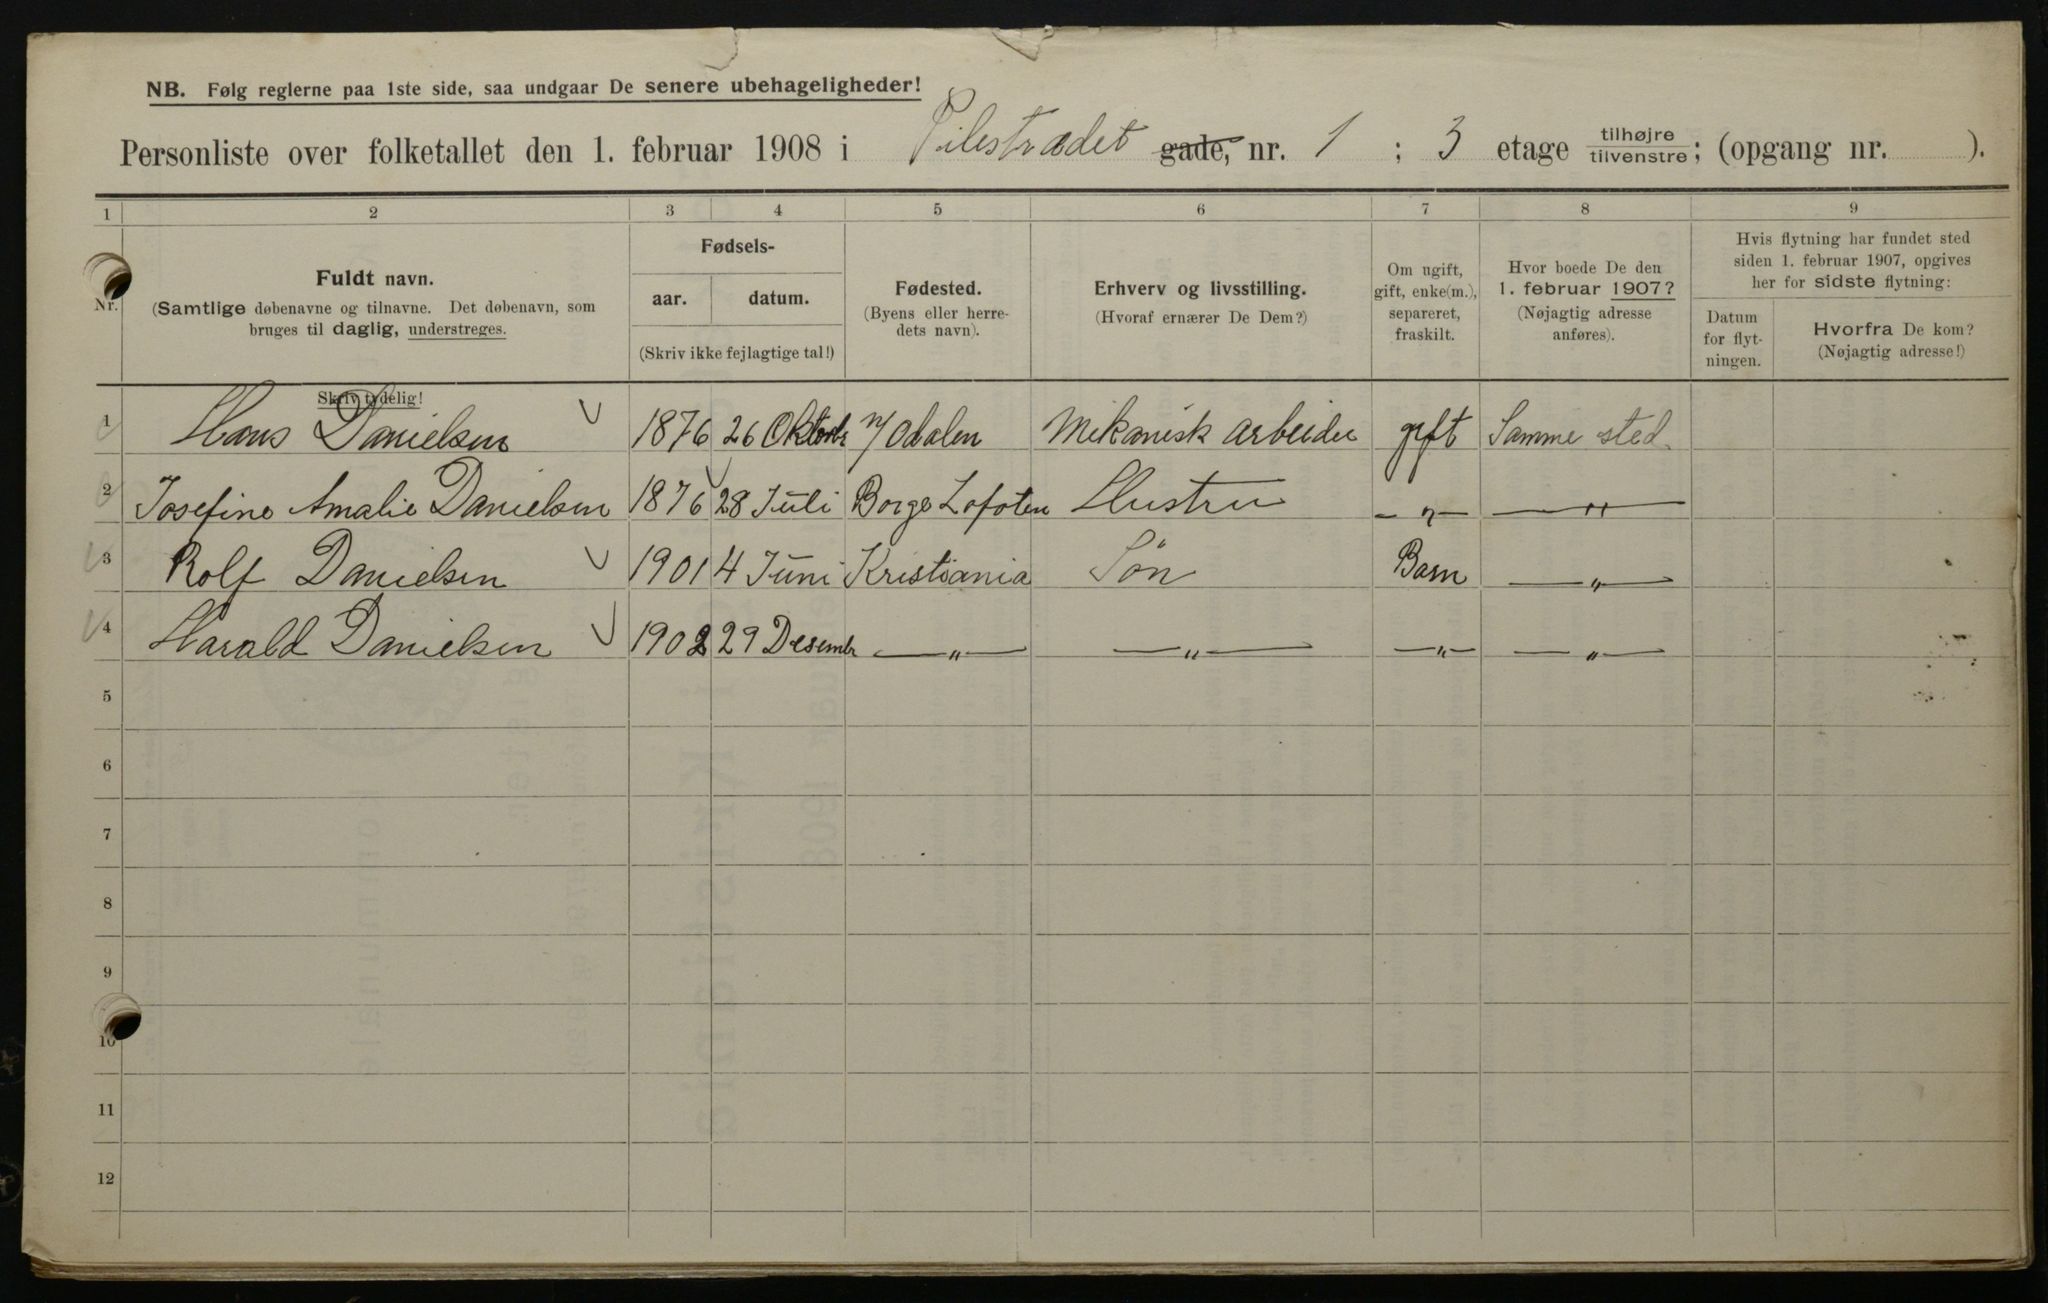 NB. Følg reglerne paa 1ste side, saa undgaar De senere ubehageligheder!
Personliste over folketallet den 1. februar 1908 i Pilestrædet gade, nr. 1 ; 3 etage tilhøjre tilvenstre; (opgang nr. ).
1 2 3 4 5 6 7 8 9
Nr.
Fuldt navn.
(Samtlige døbenavne og tilnavne. Det døbenavn, som
bruges til daglig, understreges.
Skriv tydelig!
Fødsels-
aar. datum.
(Skriv ikke fejlagtige tal!)
Fødested.
(Byens eller herre-
dets navn).
Erhverv og livsstilling.
(Hvoraf ernærer De Dem?)
Om ugift,
gift, enke(m.),
separeret,
fraskilt.
Hvor boede De den
1. februar 1907?
(Nøjagtig adresse
anføres).
Hvis flytning har fundet sted
siden 1. februar 1907, opgives
her for sidste flytning:
Datum
for flyt-
ningen.
Hvorfra De kom?
(Nøjagtig adresse!)
1 Hans Danielsen 1876 26 Oktobr N/Odalen Mekanisk arbeider gift Samme sted
2 Josefine Amalie Danielsen 1876 28 Juli Borge Lofoten Hustru — " — — " —
3 Rolf Danielsen 1901 4 Juni Kristiania Søn Barn — " —
4 Harald Danielsen 1902 29 Desembr — " — — " — — " — — " —
5
6
7
8
9
10
11
12